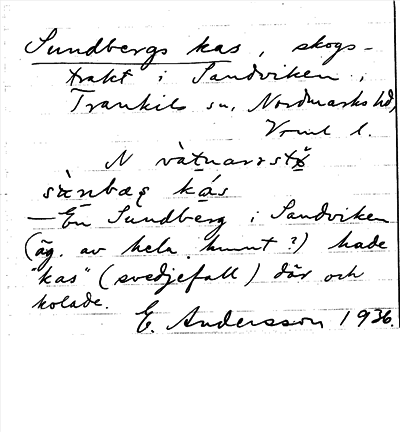 Sundbergs kas, skogs-
trakt i Sandviken i
Trankils sn, Nordmarks hd,
Vrml l.
N
kas
– En Sundberg i Sandviken
(äg. av hela hmnt?) hade
"kas" (svedjefall) där och
kolade.
E. Andersson 1936.